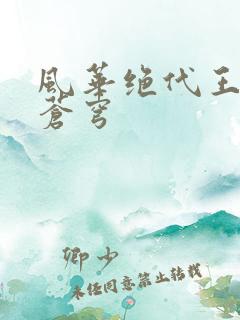 風華绝代王
蒼穹
卿少
未经同意禁止转载